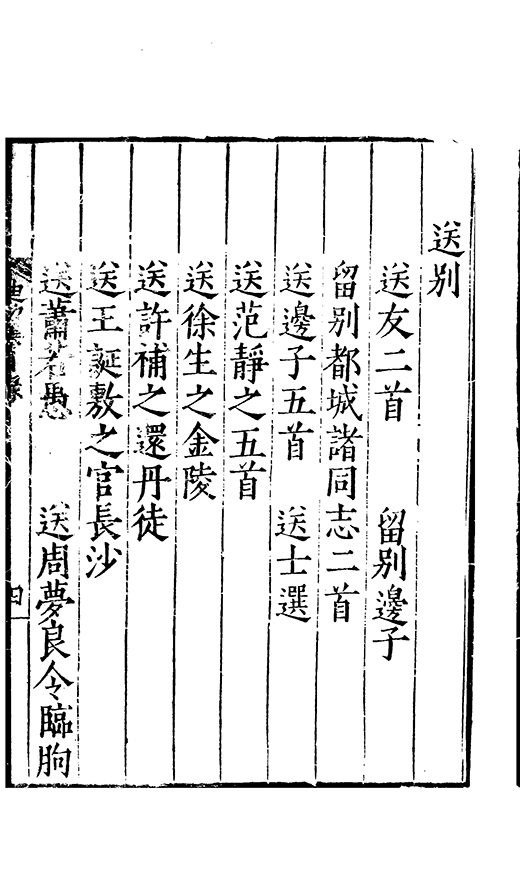 送別
送友二首　留別邊子
留別都城諸同志二首
送邊子五首　送士選
送范靜之五首
送徐生之金陵
送許補之還丹徒
送王誕敷之官長沙
送蕭若愚　送周夢良令臨朐
迪功集目錄
四